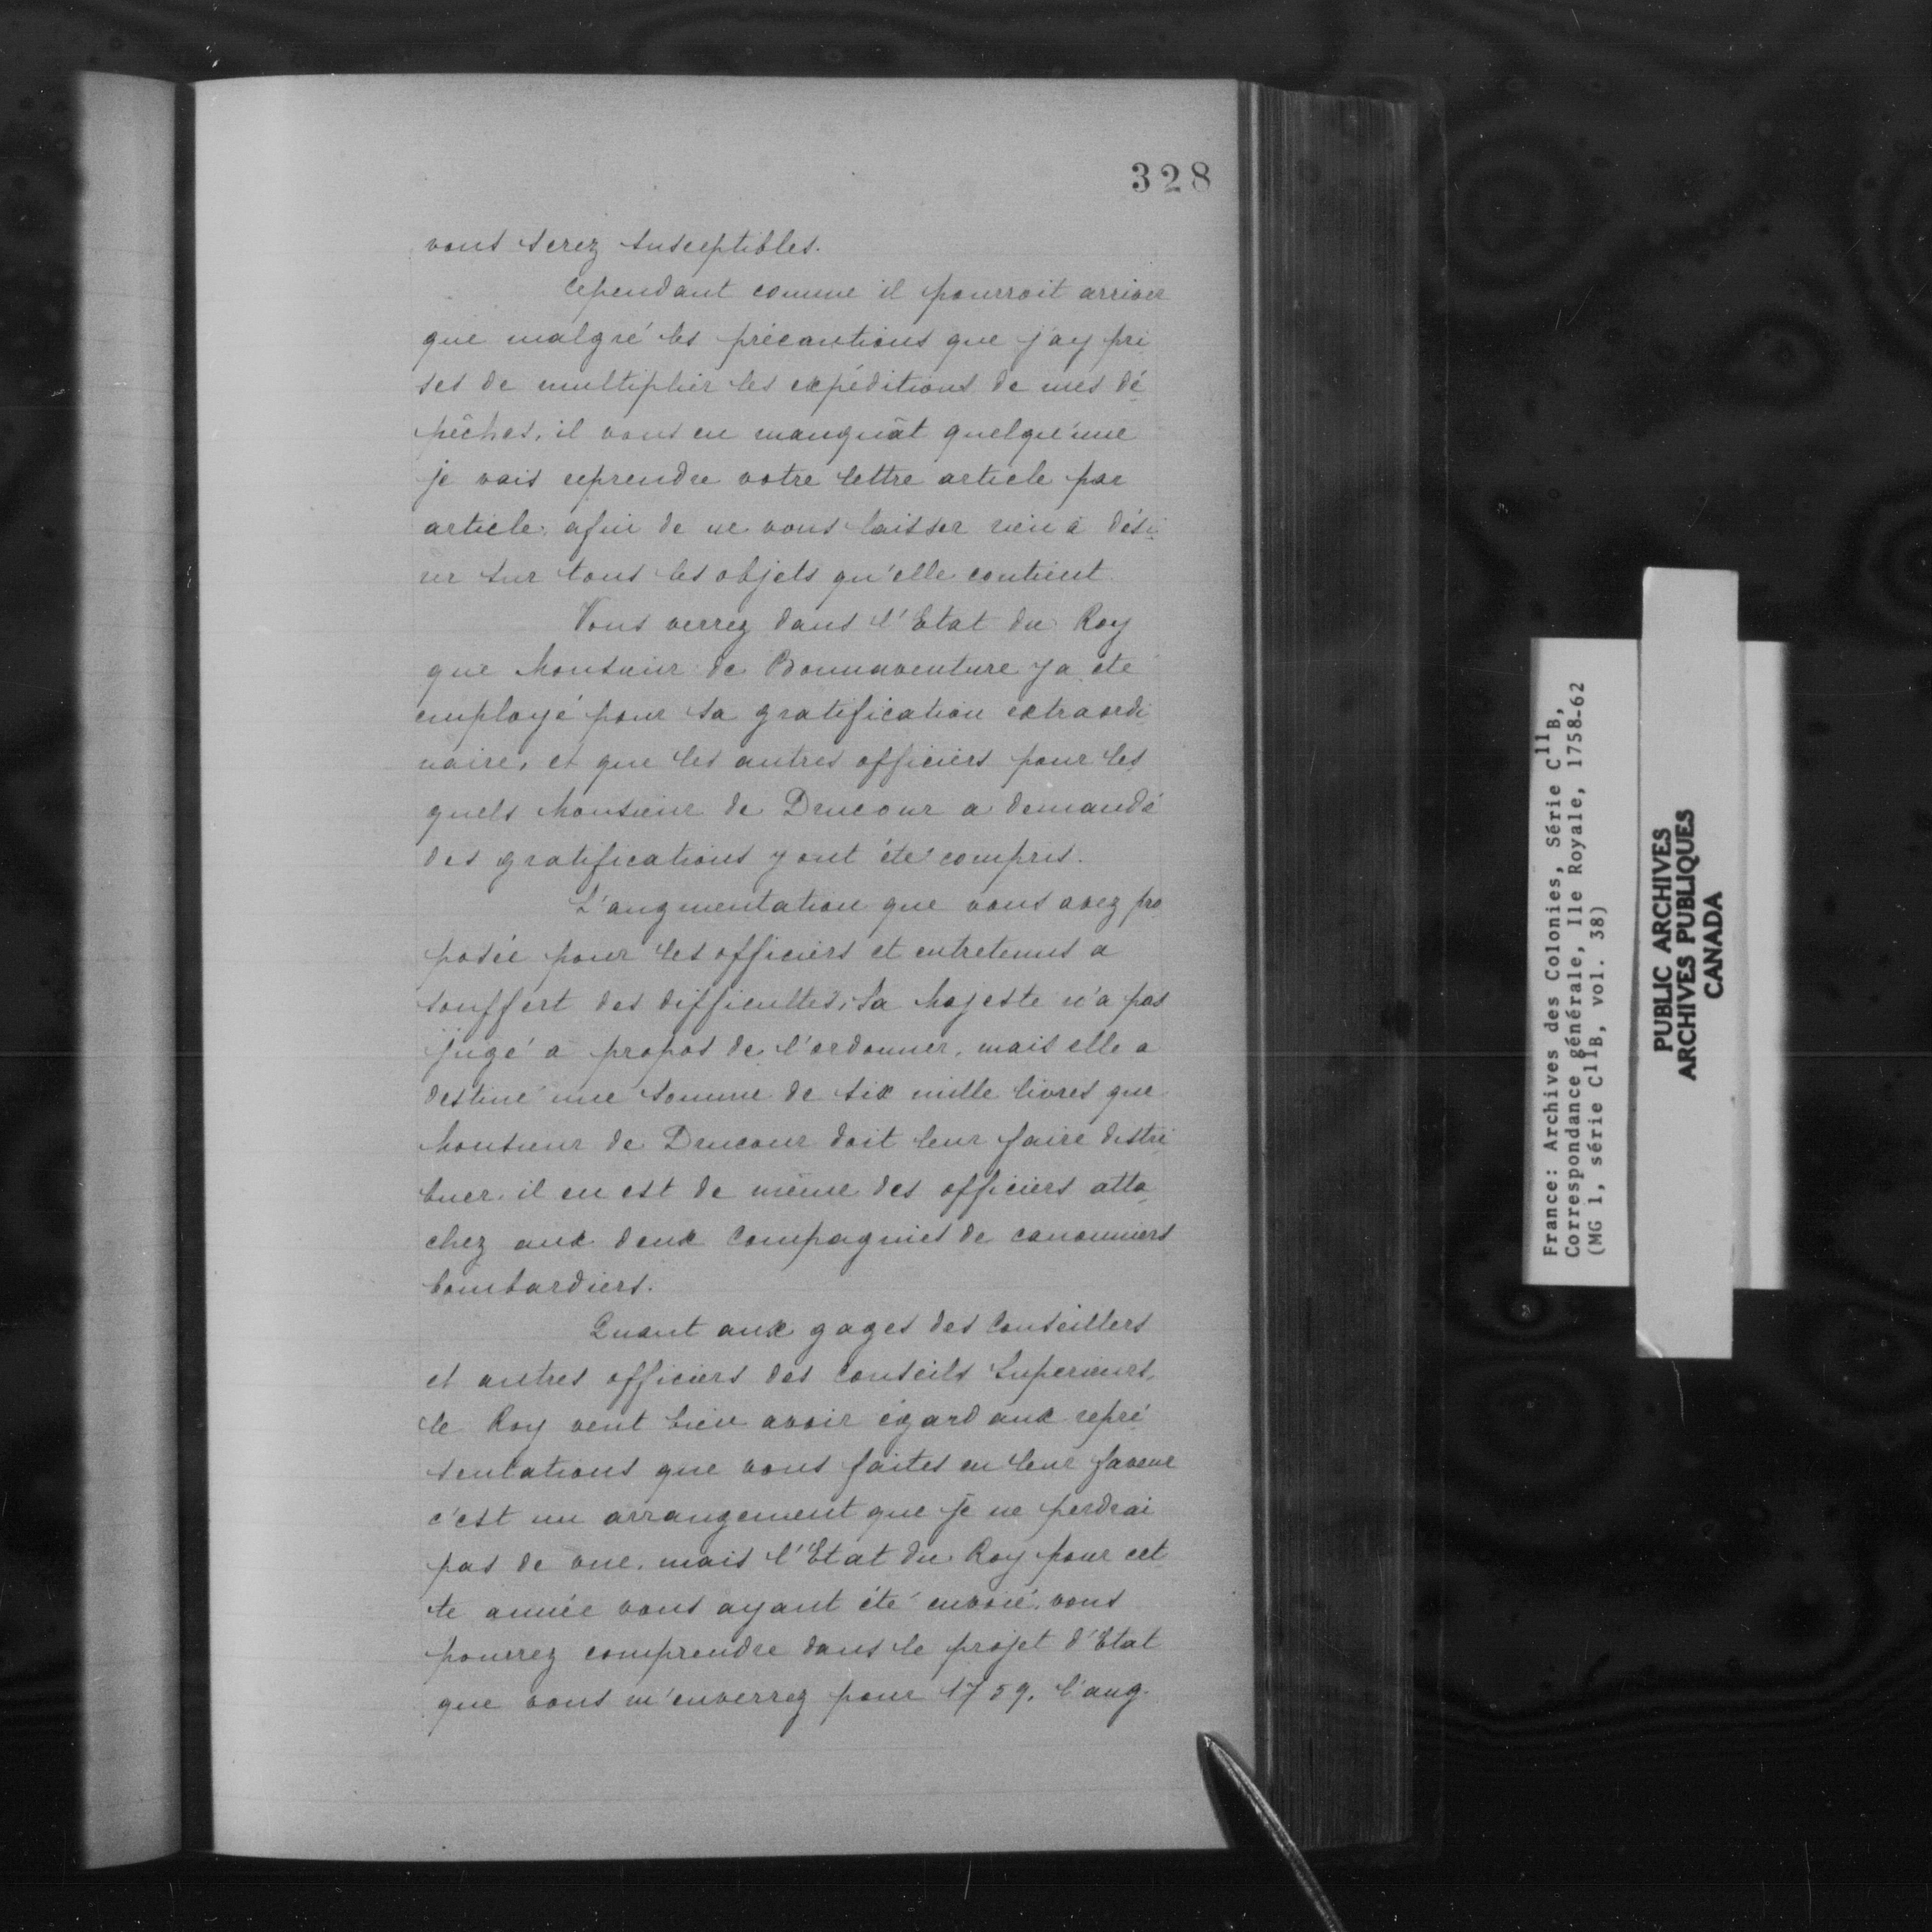 328
vous serez susceptibles.
Cependant comme il pourroit arriver
que malgré les précautions que j'ay pri
ses de multiplier les expéditions de mes dé
pêches, il vous en manquât quelqu'une
je vais reprendre votre lettre article par
article, afin de ne vous laisser rien à dési
rer sur tous les objets qu'elle contient.
Vous verrez dans l'Etat du Roy
que Monsieur de Bonnaventure y a été
employé pour sa gratification extraordi
naire, et que les autres officiers pour les
quels Monsieur de Drucour a demandé
des gratifications y ont été compris.
L'augmentation que vous avez pro
posée pour les officiers et entretenus a
souffert des difficultés, Sa Majesté n'a pas
jugé a propos de l'ordonner, mais elle a
destiné une somme de six mille livres que
Monsieur de Drucour doit leur faire distri
buer. il en est de même des officiers atta
chez aux deux Compagnies de canonniers
bombardiers.
Quant aux gages des Conseillers
et autres officiers des Conseils Superieurs,
le Roy veut bien avoir égard aux repré
sentations que vous faites en leur faveur
c'est un arrangement que je ne perdrai
pas de vue, mais l'Etat du Roy pour cet
te année vous ayant été envoié, vous
pourrez comprendre dans le projet d'Etat
que vous m'enverrez pour 1759, l'aug-
France: Archives des Colonies, Série C11B,
Correspondance générale, Ile Royale, 1758-62
(MG 1, série C11B, vol. 38)
PUBLIC ARCHIVES
ARCHIVES PUBLIQUES
CANADA